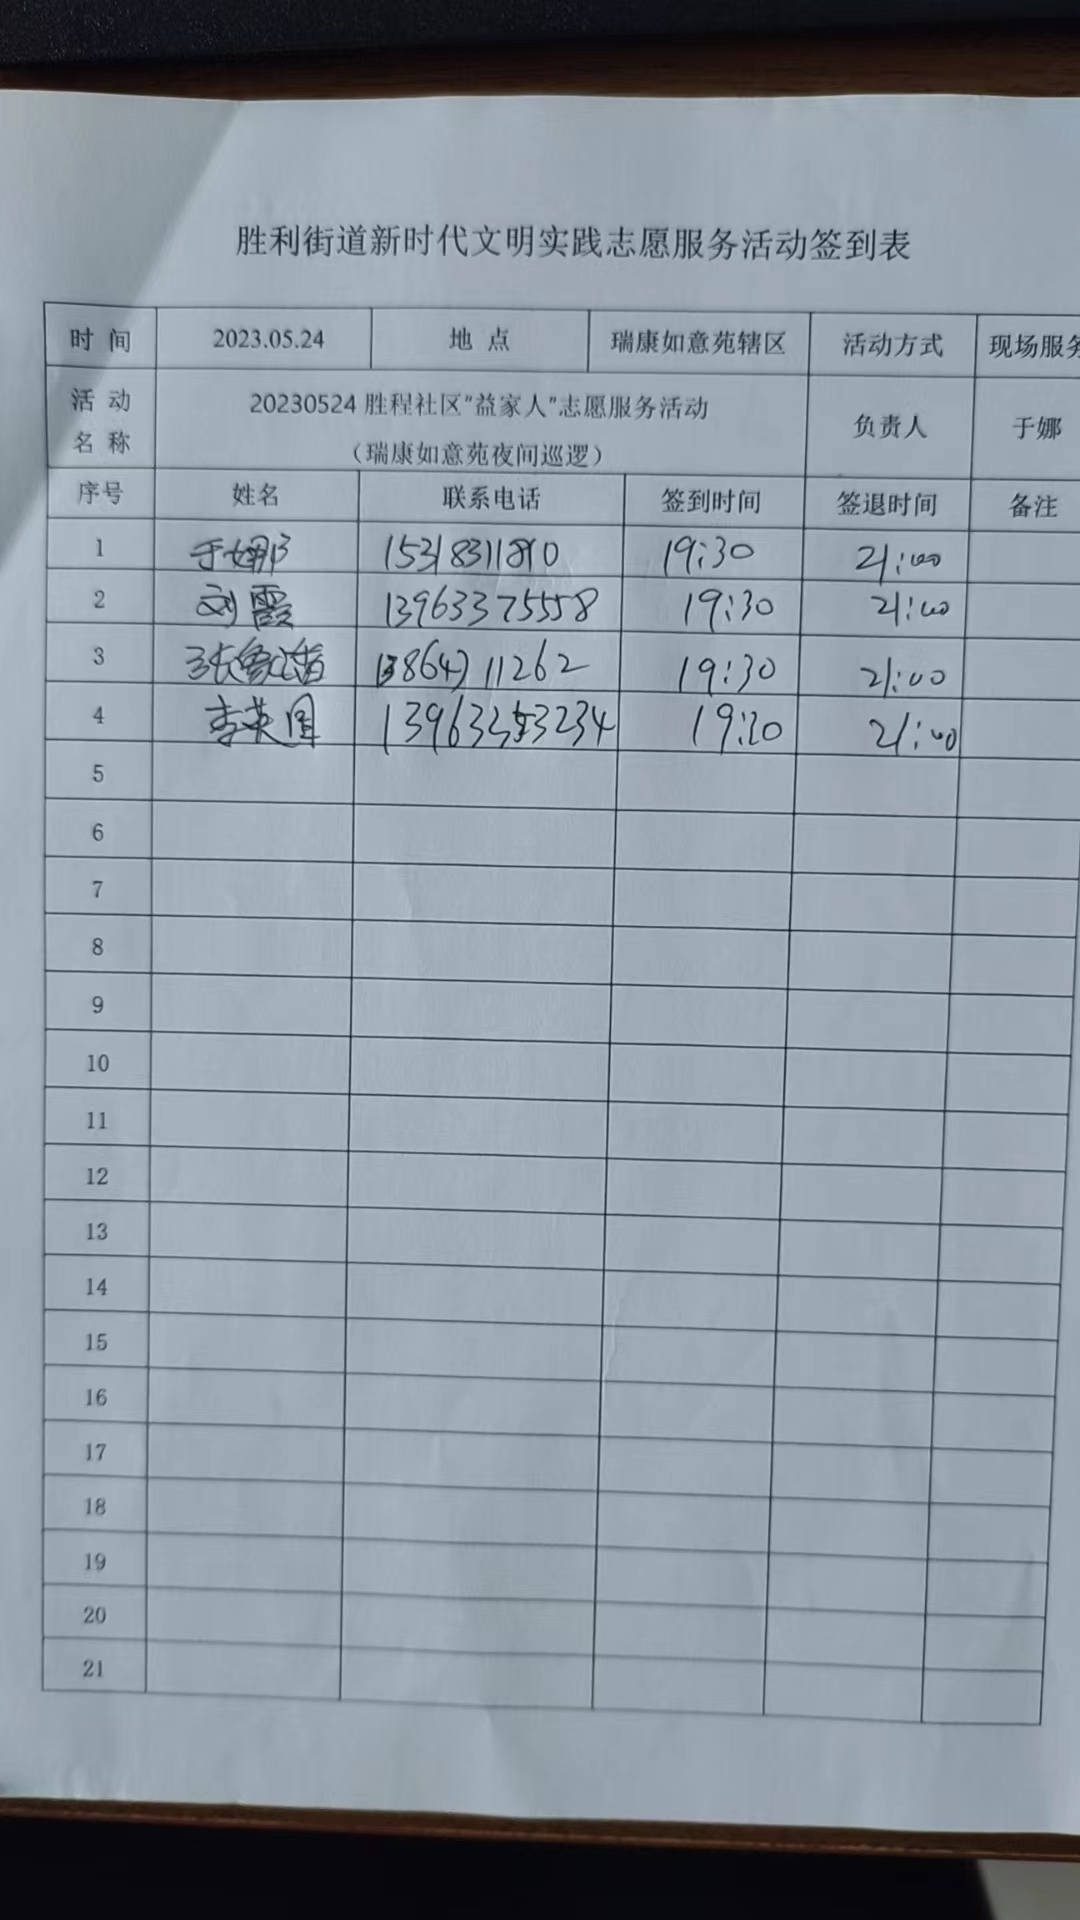 胜利街道新时代文明实践志愿服务活动签到表
时 间 2023.05.24 地 点 瑞康如意苑辖区 活动方式 现场服务
活 动 名 称 20230524 胜程社区“益家人”志愿服务活动 负责人 于娜
（瑞康如意苑夜间巡逻）
序号 姓名 联系电话 签到时间 签退时间 备注
1 于娜 15318311810 19:30 21:00
2 刘霞 13963375558 19:30 21:00
3 13864711262 19:30 21:00
4 李英 21:00
5
6
7
8
9
10
11
12
13
14
15
16
17
18
19
20
21